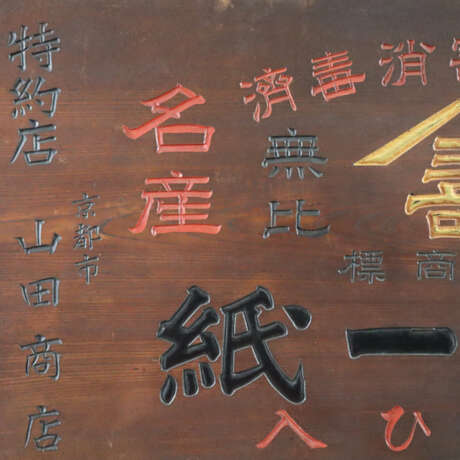 消毒濟
商標
一紙
ひ入
無比
名産
京都市
特約店 山田商店